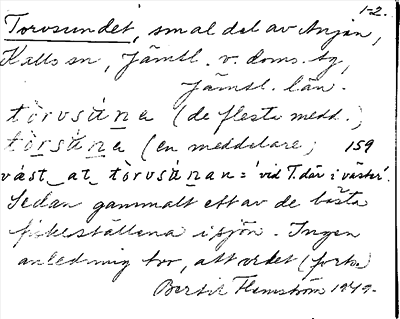 1-2.
Torvsundet, smal del av Anjan,
Kalls sn, Jämtl. v. doms. tg,
Jämtl. län.
tòrvsúna (de flesta medd.)
tòrsúna (en meddelare) 159
vást at tòrvsúnan = 'vid T. där i väster'.
Sedan gammalt ett av de bästa
fiskeställena i sjön. Ingen
anledning tro, att ordet (forts.)
Bertil Flemström 1949.